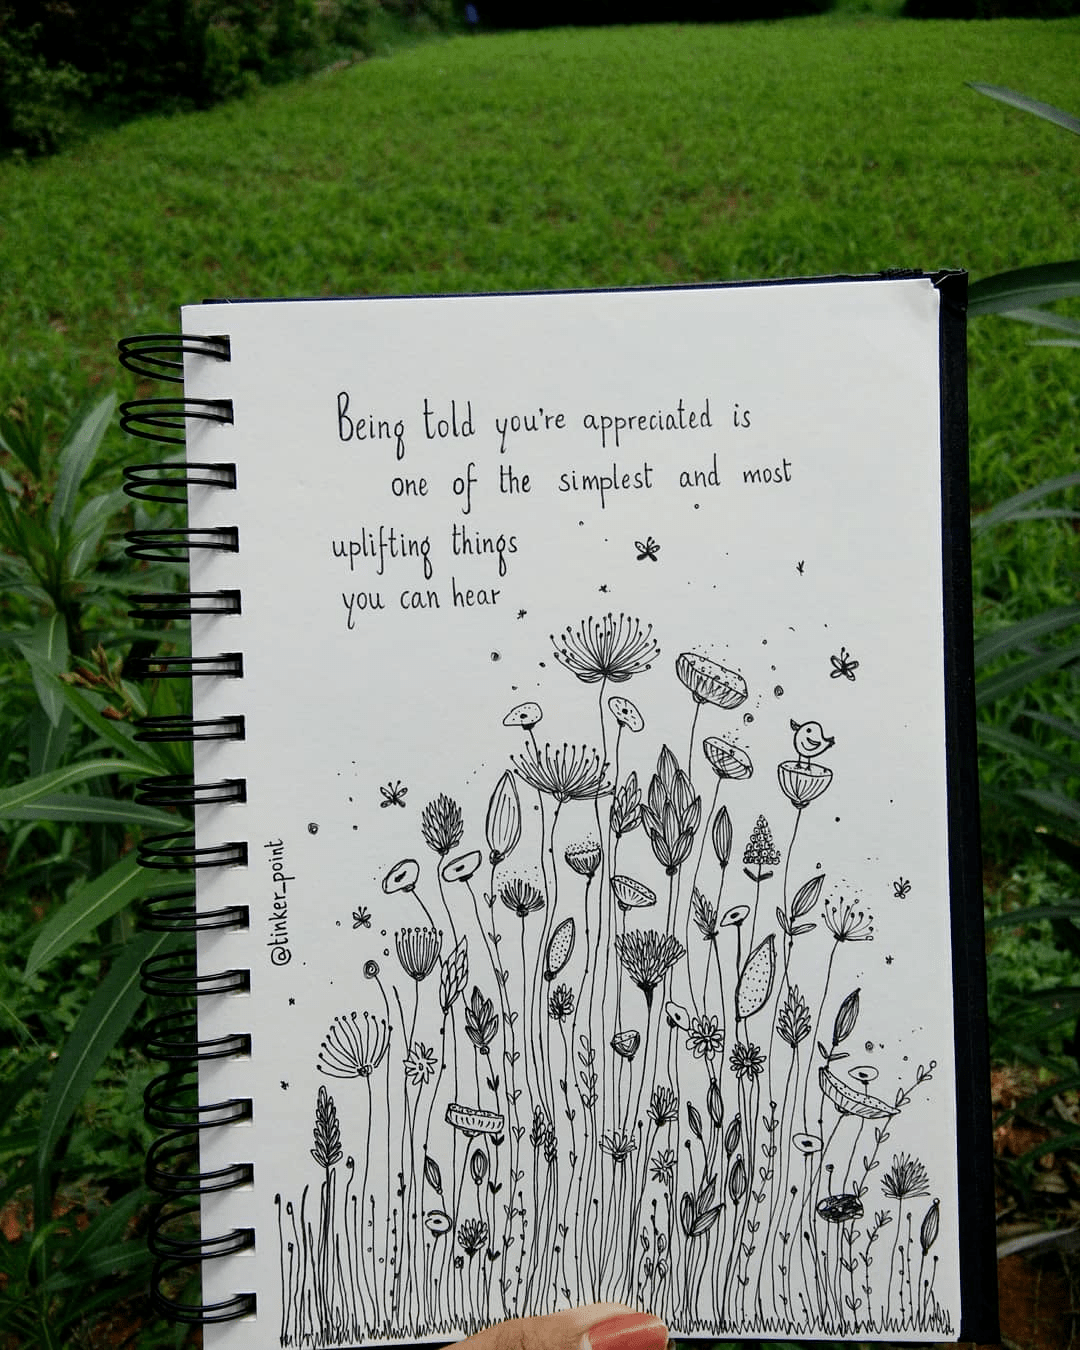 Being told you're appreciated is
one of the simplest and most
uplifting things
you can hear
@tinker_point